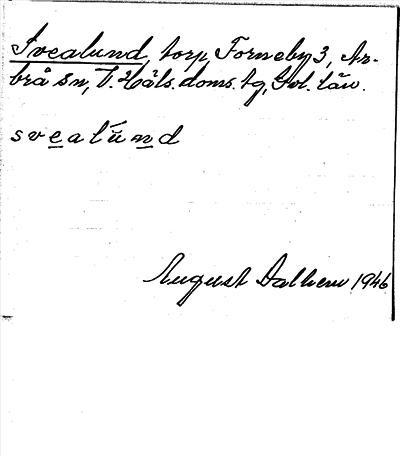 Svealund, torp, Forneby 3, Ar-
brå sn, V. Häls. doms. tg, Gvl. län.
svealu̇nd
August Dalhem 1946